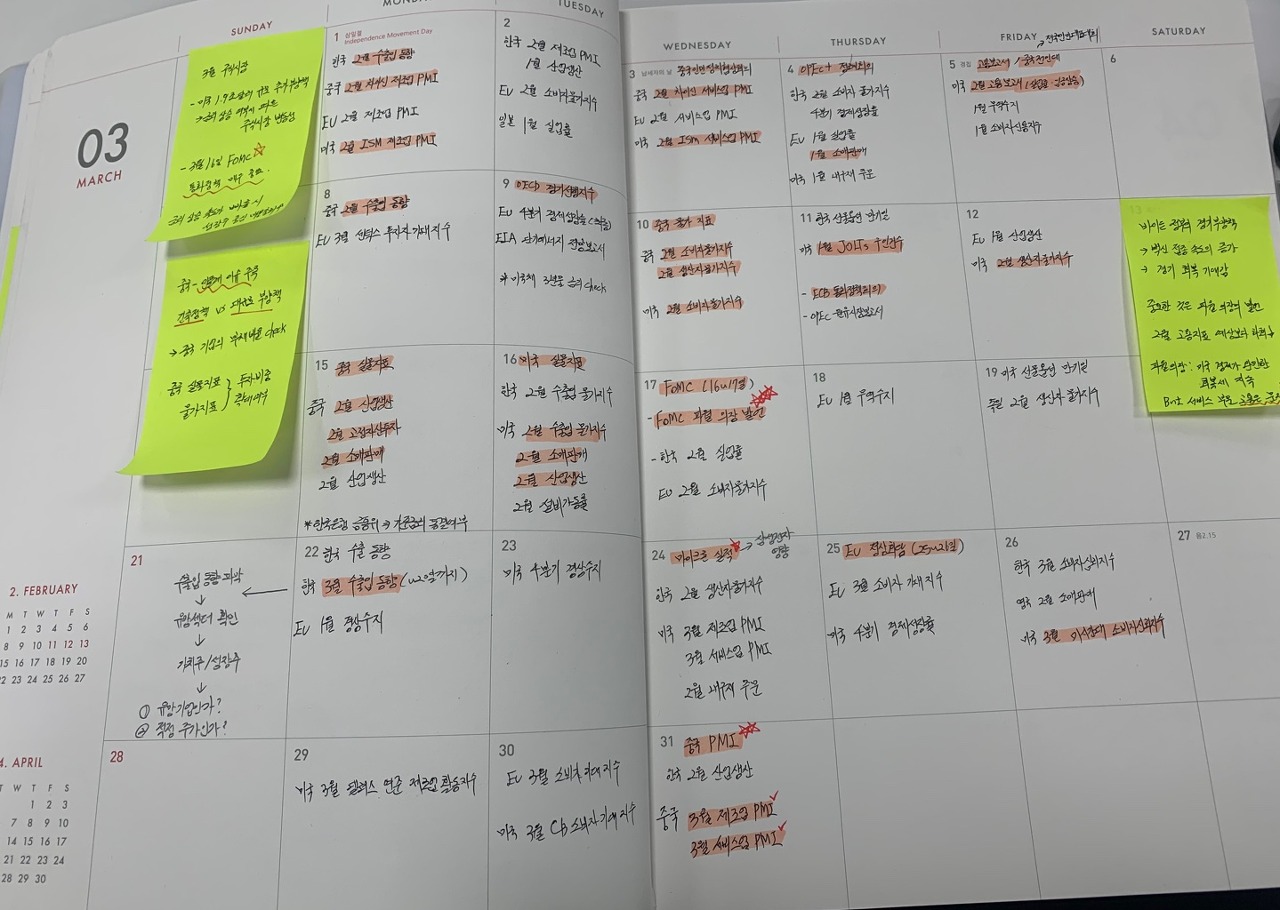 03
MARCH
SUNDAY
MONDAY
TUESDAY
WEDNESDAY
THURSDAY
FRIDAY
SATURDAY
3월 주식시장
- 3월 16일 FOMC
통화정책
1 삼일절
Independence Movement Day
한국 2월 수출입 동향
중국 2월 차이신 제조업 PMI
EU 2월 제조업 PMI
미국 2월 ISM 제조업 PMI
2
한국 2월 제조업 PMI
1월 산업생산
EU 2월 소비자물가지수
일본 1월 실업률
3 납세자의 날
중국 2월 차이신 서비스업 PMI
EU 2월 서비스업 PMI
미국 2월 ISM 서비스업 PMI
4 OPEC+ 정례회의
한국 2월 소비자물가지수
4분기 경제성장률
EU 1월 실업률
1월 소매판매
미국 1월 내구재 주문
5 경칩
미국 2월 고용보고서
1월 무역수지
1월 소비자신용지수
6
8
중국 2월 수출입 동향
EU 3월 센틱스 투자자기대지수
9 OECD 경기선행지수
EU 4분기 경제성장률
EIA 단기에너지 전망보고서
* 미국채 3년물 금리 check
10 중국 물가 지표
중국 2월 소비자물가지수
2월 생산자물가지수
미국 2월 소비자물가지수
11 한국 선물옵션 만기일
미국 1월 JOLTs 구인건수
- ECB 통화정책회의
- OPEC 원유시장보고서
12
EU 1월 산업생산
미국 2월 생산자물가지수
13
바이든 정부 경기부양책
→ 백신 접종 속도의 증가
→ 경기 회복 기대감
중요한 것은 파월 의장의 발언
2월 고용지표 예상보다
파월의장: 미국 경제가 완만한
회복세
But 서비스 부문 고용은
중국 -
긴축정책 vs 부양책
→ 중국 기업의 부채비율 check
중국 실물지표
물가지표
투자비중
확대여부
15 중국 실물지표
중국 2월 산업생산
2월 고정자산투자
2월 소매판매
2월 산업생산
*한국은행 금통위 → 기준금리 동결여부
16 미국 실물지표
한국 2월 수출입 물가지수
미국 2월 수출입 물가지수
2월 소매판매
2월 산업생산
2월 설비가동률
17 FOMC (16~17일)
- FOMC 파월 의장 발언
- 한국 2월 실업률
EU 2월 소비자물가지수
18
EU 1월 무역수지
19 미국 선물옵션 만기일
독일 2월 생산자물가지수
21
수출입 동향 파악
↓
유망섹터 확인
↓
가치주/성장주
↓
① 유망기업인가?
② 적정 주가인가?
22 한국 수출 동향
한국 3월 수출입 동향 (~20일까지)
EU 1월 경상수지
23
미국 4분기 경상수지
24 마이크론 실적 → 삼성전자
영향
한국 2월 생산자물가지수
미국 3월 제조업 PMI
3월 서비스업 PMI
2월 내구재 주문
25 EU 정상회담 (25~26일)
EU 3월 소비자기대지수
미국 4분기 경제성장률
26
한국 3월 소비자신뢰지수
영국 2월 소매판매
미국 3월 미시간대 소비자신뢰지수
27 음2.15
28
29
미국 3월 댈러스 연준 제조업 활동지수
30
EU 3월 소비자기대지수
미국 3월 CB 소비자기대지수
31 중국 PMI
한국 2월 산업생산
중국 3월 제조업 PMI
3월 서비스업 PMI
2. FEBRUARY
M T W T F S
1 2 3 4 5 6
8 9 10 11 12 13
15 16 17 18 19 20
22 23 24 25 26 27
4. APRIL
T W T F S
1 2 3
7 8 9 10
14 15 16 17
21 22 23 24
28 29 30